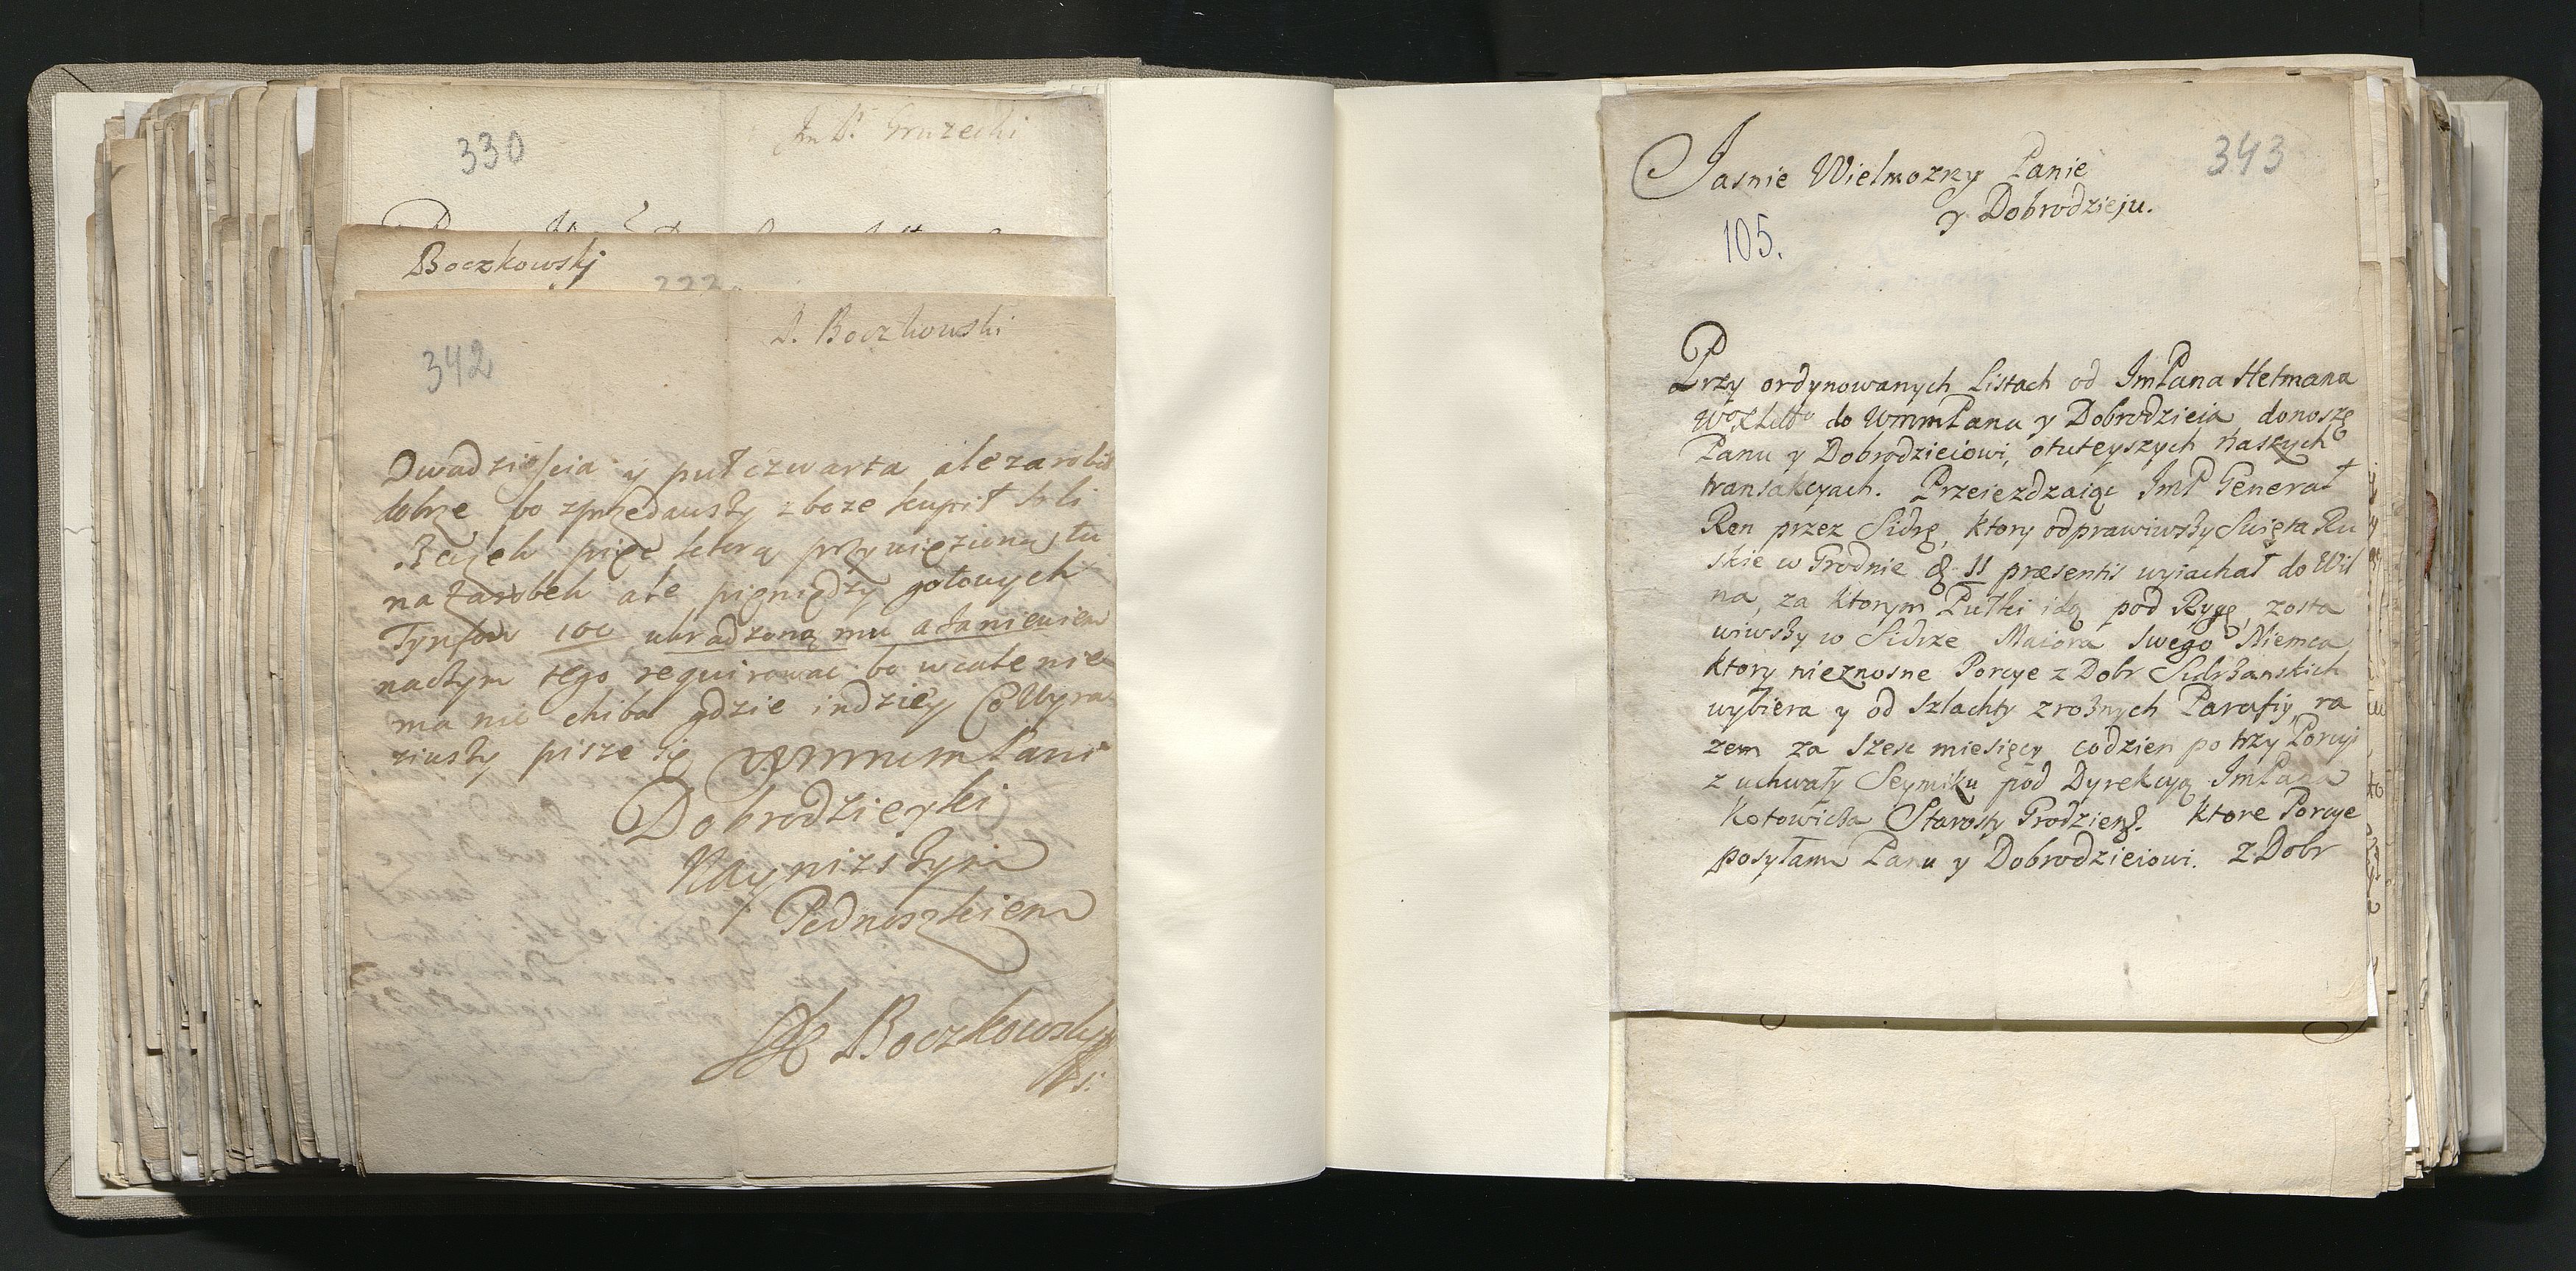 330
Im P. Gruzecki
Boczkowskj
222
P. Boczkowski
342
Dwadziescia y pułczwarta ale zarobił
dobrze bo zprzedawszy zboze kupił soli
Beczek pięc ktorą przywięziono tu
na Zarobek ale pięniędzy gotowych
Tynfow 100 ukradzoną mu a Ia niewiem
naczym tego requirowac bo wcale nie
ma nic chiba gdzie indziey Co Wyra
ziwszy pisze się WMMM Pani
Dobrodzieyki
Nayniższym
Podnoszkiem
Boczkowsky
343
Jasnie Wielmozny Panie
y Dobrodzieju.
105.
Przy ordynowanych Listach od ImPana Hetmana
do WmmPana y Dobrodzieia donoszę
Panu y Dobrodzieiowi, otuteyszych naszych
transakcyach. Przeiezdzaiąc ImP Generał
Ren przez Sidrę, ktory odprawiwszy Swięta Ru
skie w Grodnie d. 11 præsentis wyiachał do Wil
na, za ktorym Pułki idą pod Rygę, zosta
wiwszy w Sidrze Maiora swego Niemca
ktory nieznosne Porcye z Dobr Sidrzanskich
wybiera y od szlachty zrożnych Parafiy, ra
zem za szesc miesięcy codzien po trzy Porcyi
z uchwały Seymiku pod Dyrekcyą ImPana
Kotowicza Starosty Grodzieng. Ktore Porcye
posyłam Panu y Dobrodzieiowi. Z Dobr